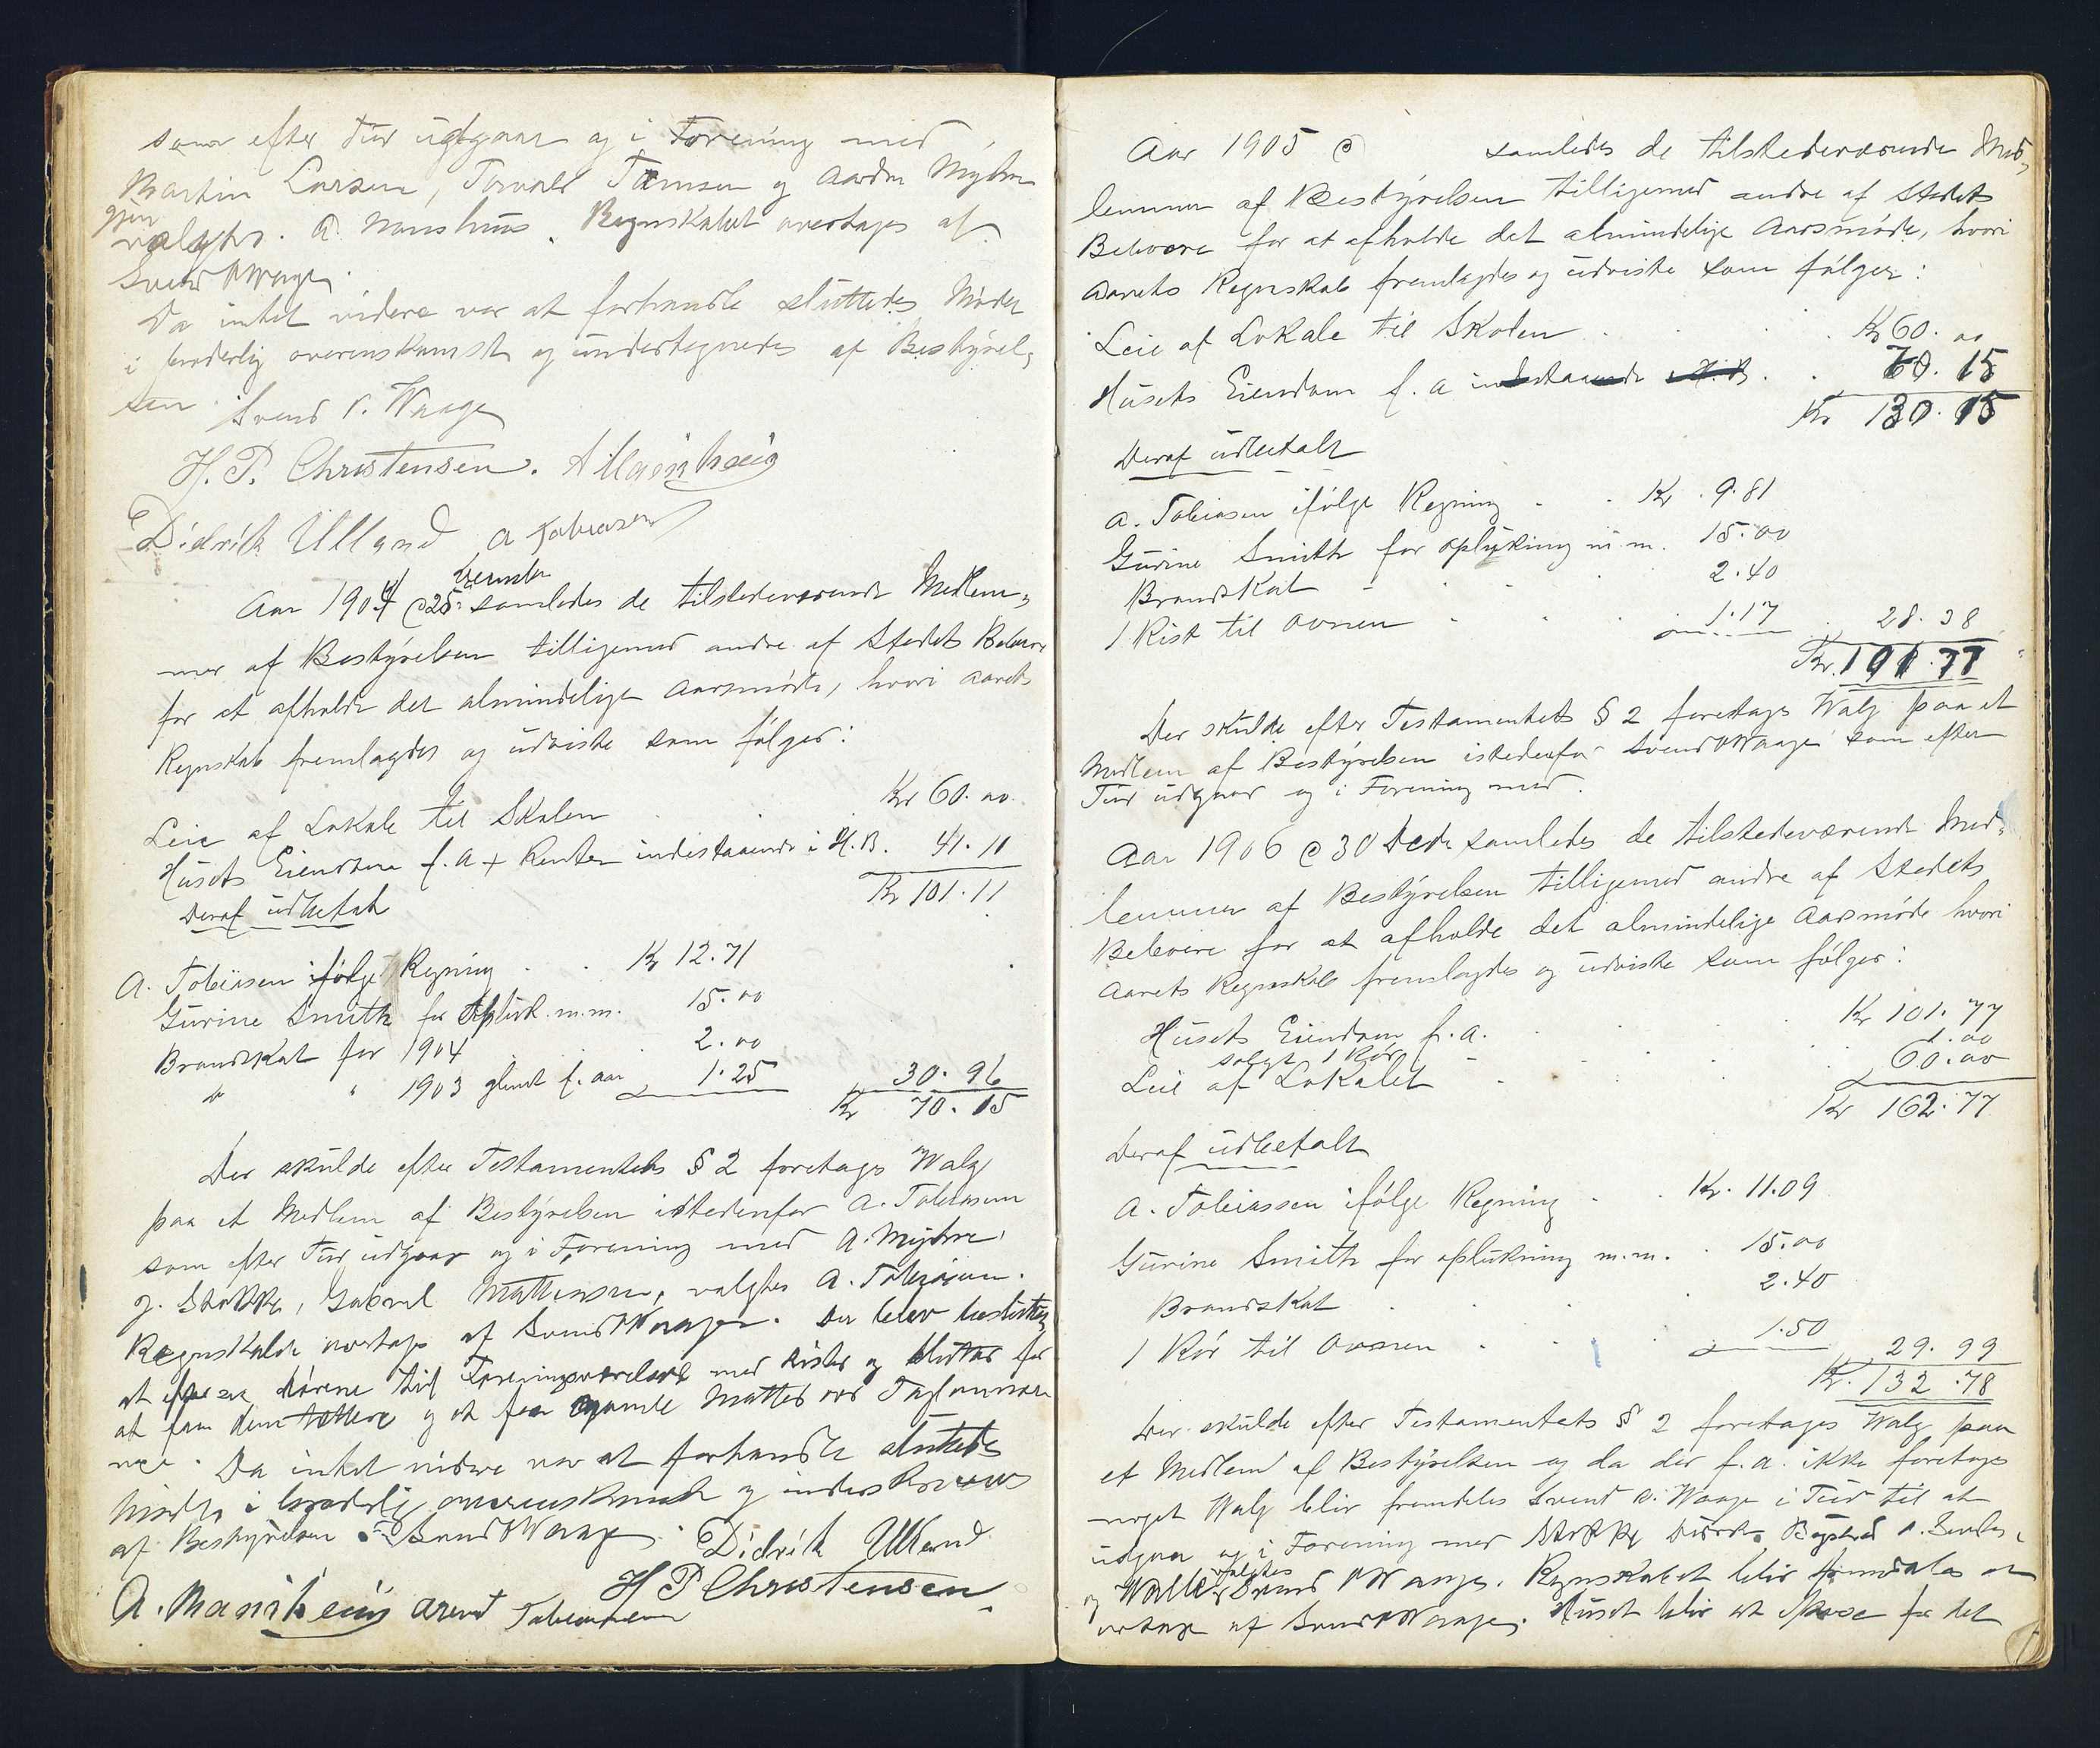 som efter Tur udgaar og i Forening med
Martin Larsen, Torvald Tomsen og Aadne Myhre
gjen
valgtes. A. Manshaus. Regnskabet overtages af
Svend V Waage.
Da intet videre var at forhandle sluttedes Mødet
i broderlig overenskomst og undertegnedes af Bestyrel-
sen. Svend V. Waage
H. P. Christensen. A Manshaus
Didrik Ulland A Tobiasen
Aar 1904 @ 25 samledes de tilstedeværende Medlem-
mer af Bestyrelsen tilligemed andre af Stedets Beboere
for at afholde det almindelige Aarsmøde, hvori aarets
Regnskab fremlagdes og udviste som følger:
Leie af Lokale til Skolen Kr 60.00
Husets Eiendom f. A + Renter indestaaende i H.B. 41.11
Kr 101.11
Deraf udbetalt
A. Tobiasen ifølge Regning . . Kr 12.71
Gurine Smith for opluk. m.m. 15.00
Brandskat for 1904 . 2.00
Do " 1903 glemt f. aar 1.25 30.96
Kr 70.15
Der skulde efter Testamentets § 2 foretages Valg
paa et Medlem af Bestyrelsen istedenfor A. Tobiasen
som efter Tur udgaar og i Forening med A. Myhre,
J. Stokke, Gabriel Mathiasen, valgtes A. Tobiasen.
Regnskabet overtages af Svend V Waage. Der blev besluttet
at efterse dørene til Foreningsværelset med Lister og Klister for
at faa dem tættere og at faa gamle Matter ved
Da intet videre var at forhandle sluttedes
Mødet i broderlig overenskomst og underskreves
af Bestyrelsen. Svend V Waage. Didrik Ulland
H P Christensen.
A. Manshaus Arent Tobiassen
Aar 1905 @ samledes de tilstedeværende Med-
lemmer af Bestyrelsen tilligemed andre af Stedets
Beboere for at afholde det almindelige Aarsmøde, hvori
aarets Regnskab fremlagdes og udviste som følger:
Leie af Lokale til Skolen . . . Kr 60.00
Husets Eiendom f. A indestaaende i H.B. . . 70.15
Kr 130.15
Deraf udbetalt
A. Tobiasen ifølge Regning . . Kr. 9.81
Gurine Smith for oplukning m.m. 15.00
Brandskat - . . . 2.40
1 Rist til Ovnen . . . 1.17 . 28.38
Kr. 101.77
Der skulde efter Testamentets § 2 foretages Valg paa et
Medlem af Bestyrelsen istedenfor Svend V Waage som efter
Tur udgaar og i Forening med.
Aar 1906 @ 30 Decbr samledes de tilstedeværende Med-
lemmer af Bestyrelsen tilligemed andre af Stedets
Beboere for at afholde det almindelige Aarsmøde hvori
aarets Regnskab fremlagdes og udviste som følger:
Husets Eiendom f. A. . . . Kr 101.77
solgt 1 Rør 1.00
Leie af Lokalet - . . . 60.00
Kr 162.77
Deraf udbetalt
A. Tobiassen ifølge Regning . . Kr. 11.09
Gurine Smith for oplukning m.m. . 15.00
Brandskat . . . . 2.40
1 Rør til Ovnen . . . 1.50 29.99
Kr. 132.78
Der skulde efter Testamentets § 2 foretages Valg paa
et Medlem af Bestyrelsen og da der f. A. ikke foretoges
noget Valg blir fremdeles Svend V. Waage i Tur til at
udgaa og i Forening med Stokke
valgtes
og Svend V Waage. Regnskabet blir fremdeles at
overtage af Svend V Waage. Huset blir at for det